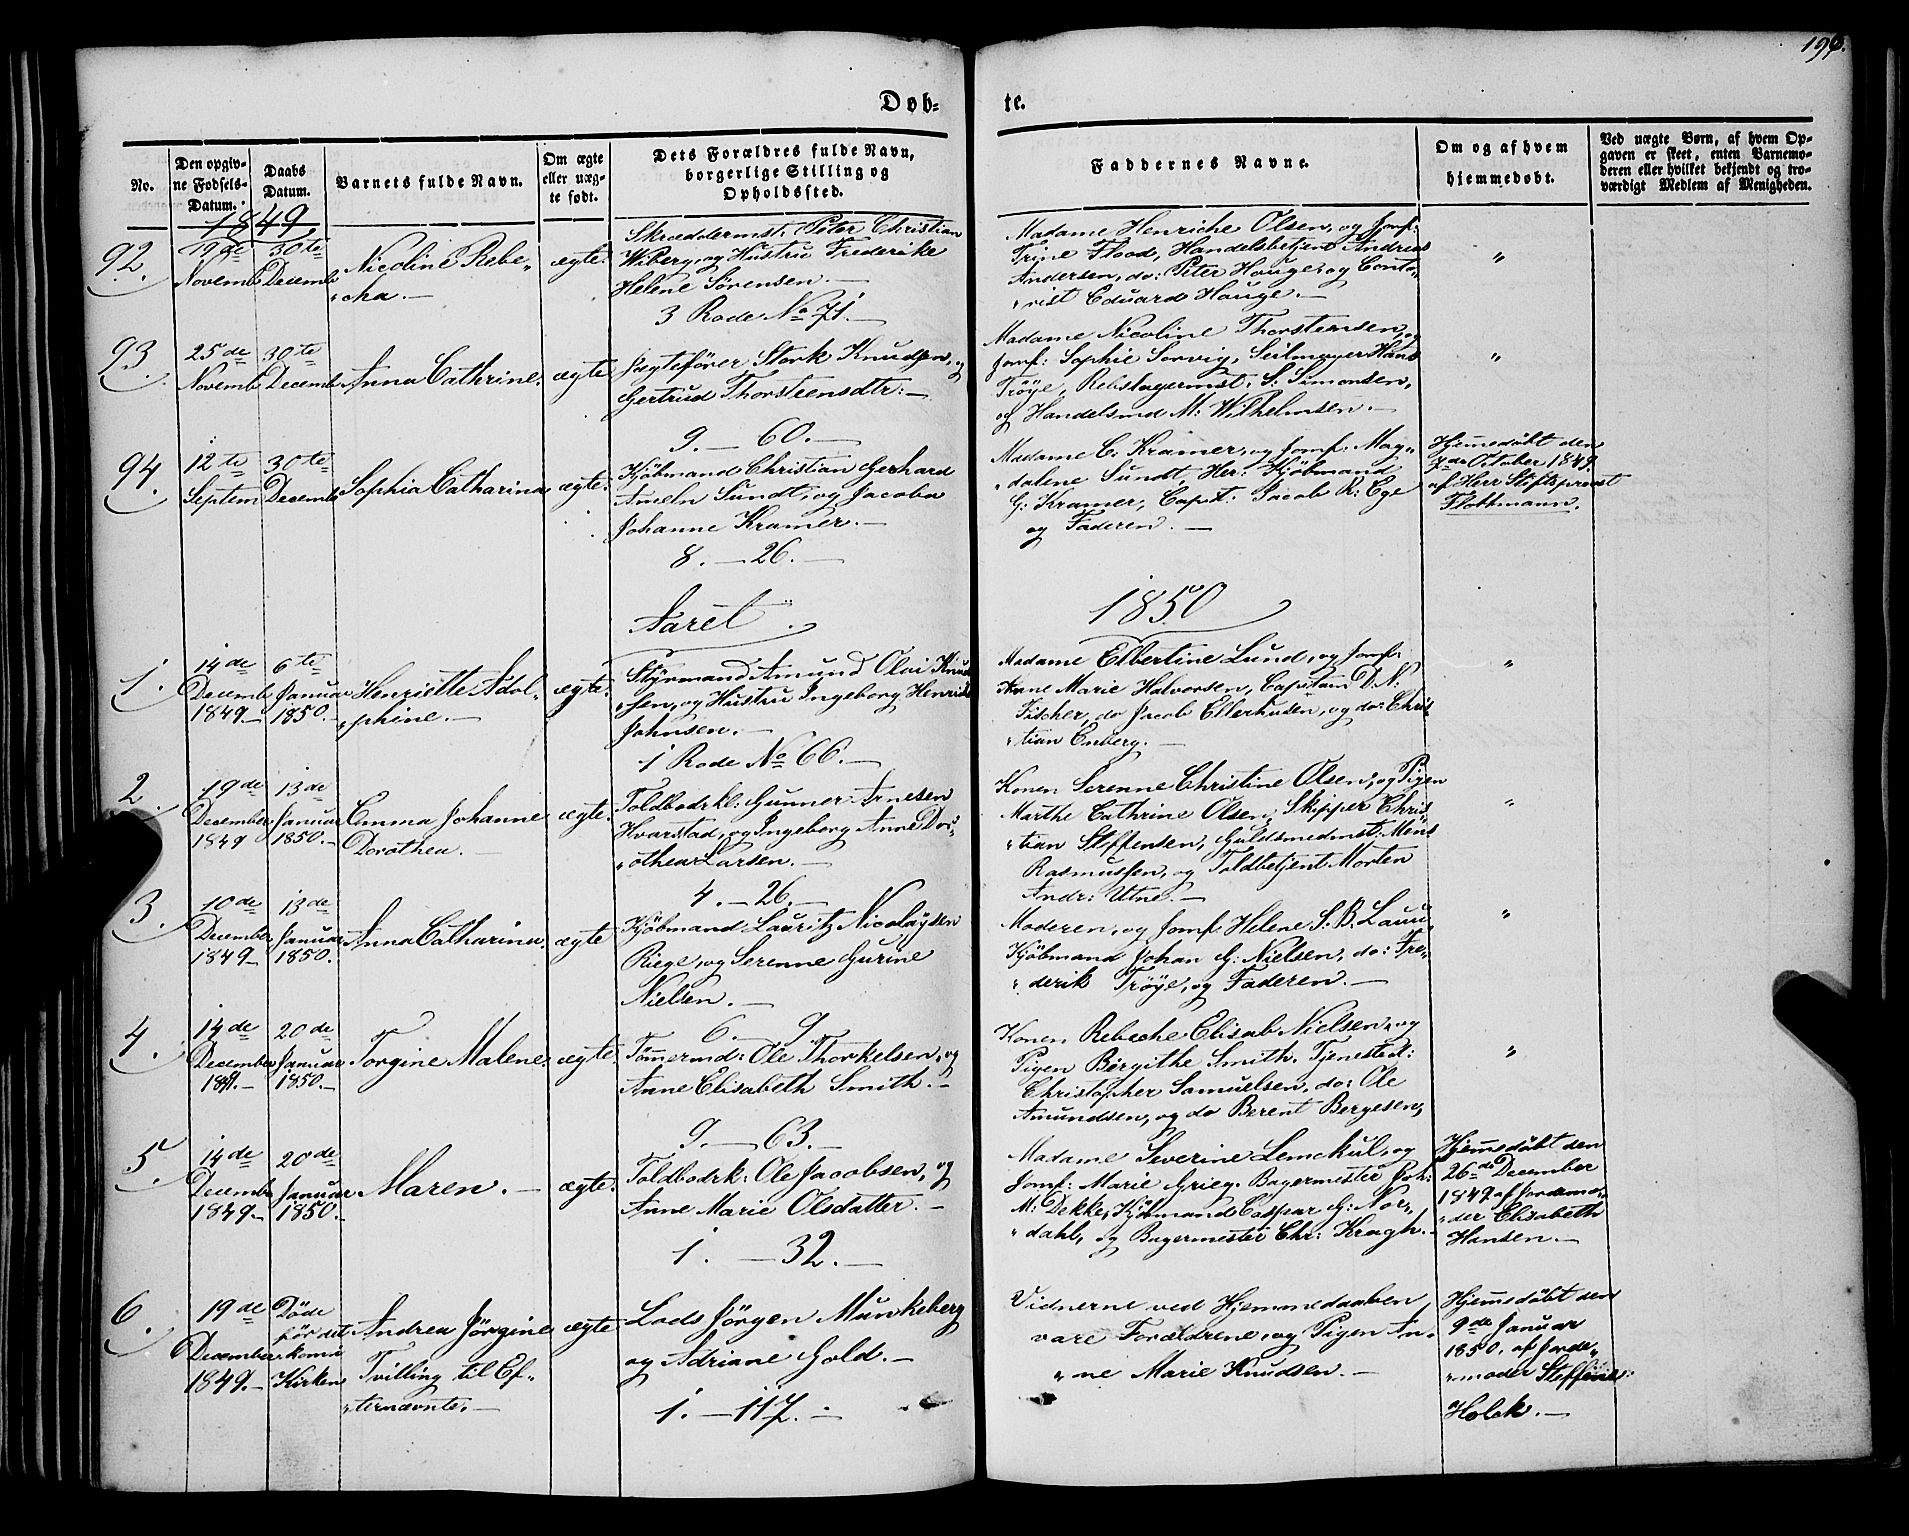 Døb-
te.
No.
Den opgiv-
ne Fødsels-
Datum.
Daabs
Datum.
Barnets fulde Navn.
Om ægte
eller uæg-
te født.
Dets Forældres fulde Navn,
borgerlige Stilling og
Opholdssted.
Faddernes Navne.
Om og af hvem
hjemmedøbt.
Ved uægte Børn, af hvem Op-
gaven er skeet, enten Barnemo-
deren eller hvilket bekjendt og tro-
værdigt Medlem af Menigheden.
1849.
92.
19de
Novemb
30te
Decemb
Nicoline Rebe-
"cha.
ægte.
Skræddermst. Peter Christian
Wiberg, og Hustru Frederikke
Helene Sörensen.
3 Rode No 71.
Madame Henriche Olsen, og Jomf:
Trine Flood, Handelsbetjent Andreas
Andersen, do: Peter Hauge, og Conto-
"rist Eduard Hauge.
"
93.
25de
Novemb
30te
Decemb
Anna Cathrine.
ægte
Jægtefører Stork Knudsen, og
Gertrud Thorsteensdtr:
9. 60.
Madame Nicoline Thorstensen, og
Jomf: Sophie Sørvig, Seilmager Hans
Tröye, Rebslagermst. S. Simonsen,
og Handelsmd M: Wilhelmsen.
"
94.
12te
Septem
30te
Decemb
Sophia Catharina
ægte.
Kjöbmand Christian Gerhard
Ameln Sundt, og Jacoba
Johanne Kramer.
8. 26.
Madame C. Kramer, og Jomf. Mag-
"dalene Sundt, Her: Kjöbmand
G: Kramer, Capt: Jacob R: Ege
og Faderen.
Hjemedöbt den
7de October 1849.
af Herr Stiftsprovst
Flottmann.
Aaret
1850
1.
14de
Decemb
1849.
6te
Januar
1850.
Henriette Adol-
"phine.
ægte.
Styrmand Amund Olai Knud-
"sen, og Hustru Ingeborg Henrikke
Johnsen.
1 Rode No 66.
Madame Elbertine Lund, og Jomf:
Anne Marie Halvorsen, Capitain D. N:
Fischer, do Jacob Ellerhusen, og do: Chris-
"tian Enberg.
"
2.
19de
December
1849
13de
Januar
1850.
Emma Johanne
Dorothea.
ægte.
Toldbodrkl: Gunner Arnesen
Hvarstad, og Ingeborg Anne Dor-
"othea Larsen.
4. 26.
Konen Serenne Christine Olsen, og Pigen
Marthe Cathrine Olsen, Skipper Chris-
"tian Steffensen, Guldsmedmst: Mens
Rasmussen, og Toldbetjent Morten
Andr: Utne.
"
3.
10de
December
1849
13de
Januar
1850.
Anna Catharina.
ægte
Kjöbmand Lauritz Nicolaysen
Riege, og Serenne Gurine
Nielsen.
6. 9
Moderen, og Jomf: Helene S. B. Lauu,
Kjöbmand Johan G: Nielsen, do: Fre-
"derik Tröye, og Faderen.
"
4.
14de
December
1849.
20de
Januar
1850.
Torgine Malene.
ægte.
Tømermd: Ole Thorkelsen, og
Anne Elisabeth Smith.
9. 63.
Konen Rebeche Elisab Nielsen, og
Pigen Bergithe Smith. Tjenestedr:
Christopher Samuelsen, do: Ole
Amundsen, og do Berent Bergesen,
"
5.
14de
December
1849.
20de
Januar
1850.
Maren.
ægte.
Toldbodrk: Ole Jacobsen, og
Anne Marie Olsdatter.
1. 32.
Madame Severine Lemckul, og
Jomf: Marie Grieg. Bagermester Joh:
M: Dekke, Kjöbmand Caspar G: Nor-
"dahl, og Bagermester Chr: Kragh.
Hjemedöbt den
26de December
1849 af Jordemo-
"der Elisabeth
Hansen.
6.
19de
December
1849.
Döde
för det
kom i
Kirken
Andrea Jörgine
Tvilling til Ef-
"ternævnte.
ægte
Lods Jörgen Munkeberg
og Adriane Gold.
1. 117.
Vidnerne ved Hjemmedaaben
vare Forældrene, og Pigen An-
"ne Marie Knudsen.
Hjemedöbt den
9de Januar
1850, af Jorde-
"moder Steffine
Holck.